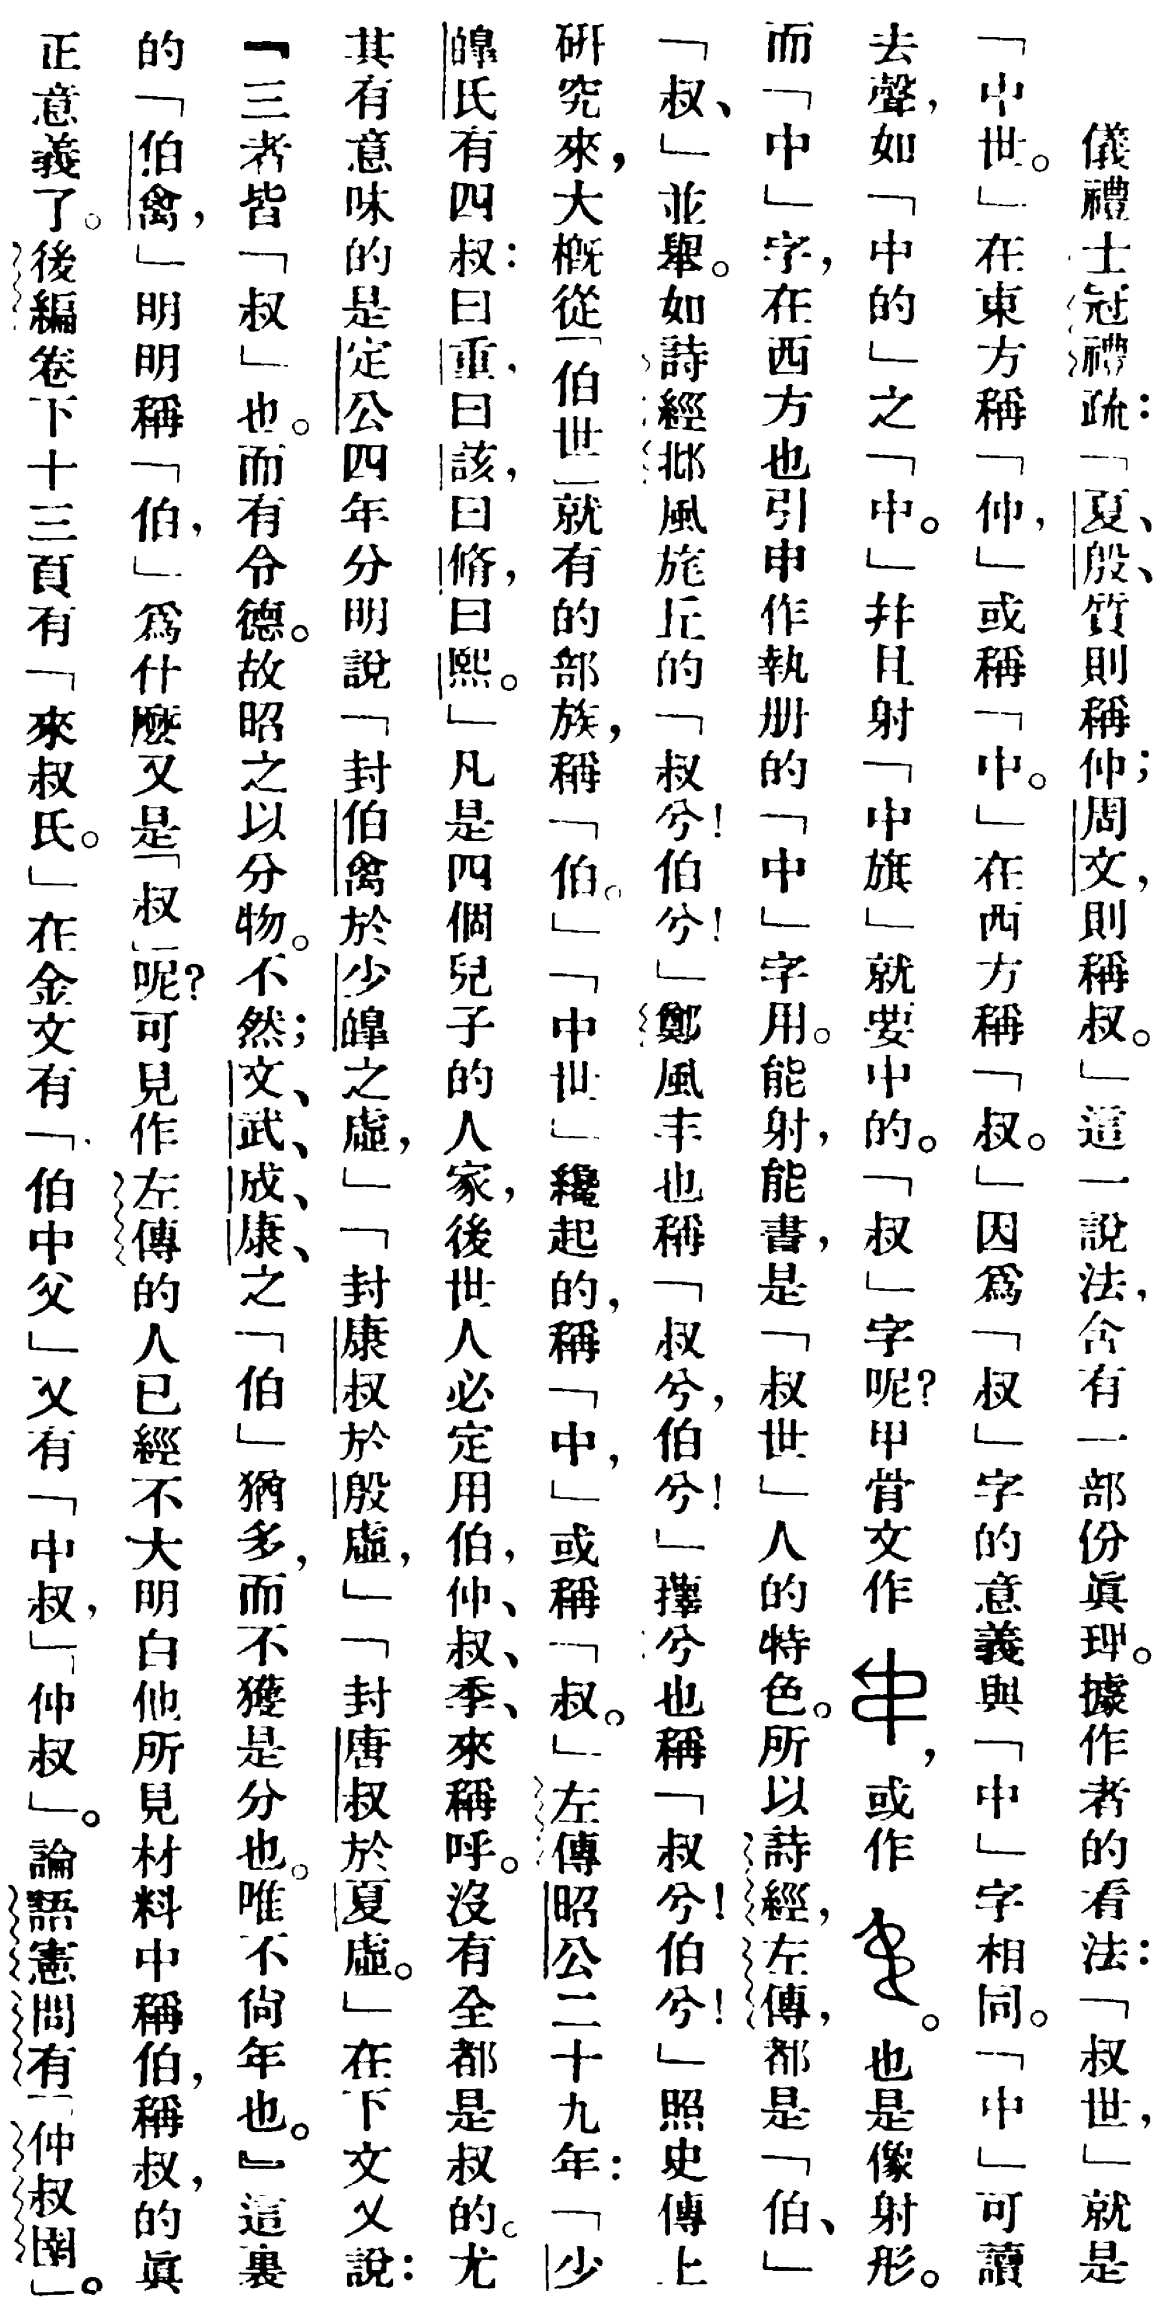 儀禮士冠禮疏：「夏、殷、質則稱仲；周文，則稱叔。」這一說法，含有一部份眞理。據作者的看法：「叔世，」就是
「中世。」在東方稱「仲，」或稱「中。」在西方稱「叔。」因爲「叔」字的意義與「中」字相同。「中」可讀
去聲，如「中的」之「中。」幷且射「中旗」就要中的。「叔」字呢？甲骨文作，或作。也是像射形。
而「中」字，在西方也引申作執册的「中」字用。能射，能書，是「叔世」人的特色。所以詩經，左傳，都是「伯、」
「叔、」並舉。如詩經邶風旄丘的「叔兮！伯兮！」鄭風丰也稱「叔兮，伯兮！」蘀兮也稱「叔兮！伯兮！」照史傳上
研究來，大概從「伯世」就有的部族，稱「伯。」「中世」纔起的，稱「中，」或稱「叔。」左傳昭公二十九年：「少
皞氏有四叔：曰重，曰該，曰脩，曰熙。」凡是四個兒子的人家，後世人必定用伯，仲、叔、季、來稱呼。沒有全都是叔的。尤
其有意味的是定公四年分明說「封伯禽於少皞之虛，」「封康叔於殷虛，」「封唐叔於夏虛。」在下文又說：
『三者皆「叔」也。而有令德。故昭之以分物。不然；文、武、成、康、之「伯」猶多，而不獲是分也。唯不尙年也。』這裏
的「伯禽，」明明稱「伯，」爲什麼又是「叔」呢？可見作左傳的人已經不大明白他所見材料中稱伯，稱叔，的眞
正意義了。後編卷下十三頁有「來叔氏。」在金文有「伯中父」又有「中叔，」「仲叔」。論語憲問有「仲叔圉」。